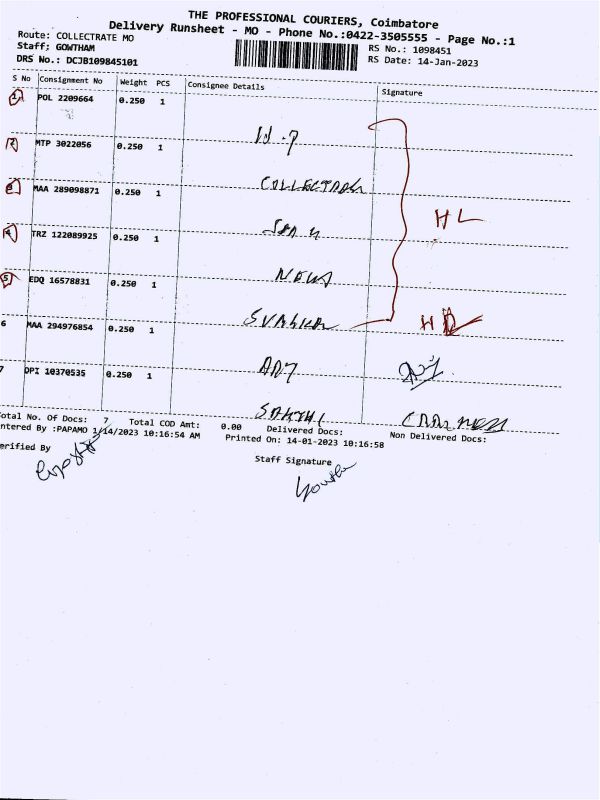 THE PROFESSIONAL COURIERS, Coimbatore
Delivery Runsheet - MO - Phone No.:0422-3505555 - Page No.:1
Route: COLLECTRATE MO
RS No.: 1098451
Staff; GOWTHAM
RS Date: 14-Jan-2023
DRS No.: DCJB109845101
S No Consignment No Weight PCS Consignee Details Signature
1 POL 2209664 0.250 1
2 MTP 3022056 0.250 1
COLLECTRATE
3 MAA 289098871 0.250 1
HL
4 TRZ 122089925 0.250 1
NEWS
5 EDQ 16578831 0.250 1
6 MAA 294976854 0.250 1
7 OPI 10370535 0.250 1
SAKTHI
otal No. Of Docs: 7 Total COD Amt: 0.00 Delivered Docs: Non Delivered Docs:
ntered By :PAPAMO 1/14/2023 10:16:54 AM Printed On: 14-01-2023 10:16:58
erified By
Staff Signature
Gowtham